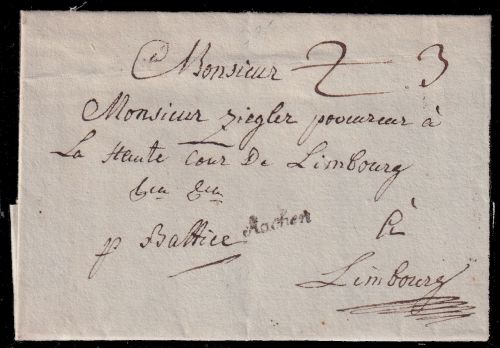 à Monsieur 3
Monsieur Ziegler procureur à
La Haute Cour De Limbourg
p Battice Aachen à
Limbourg